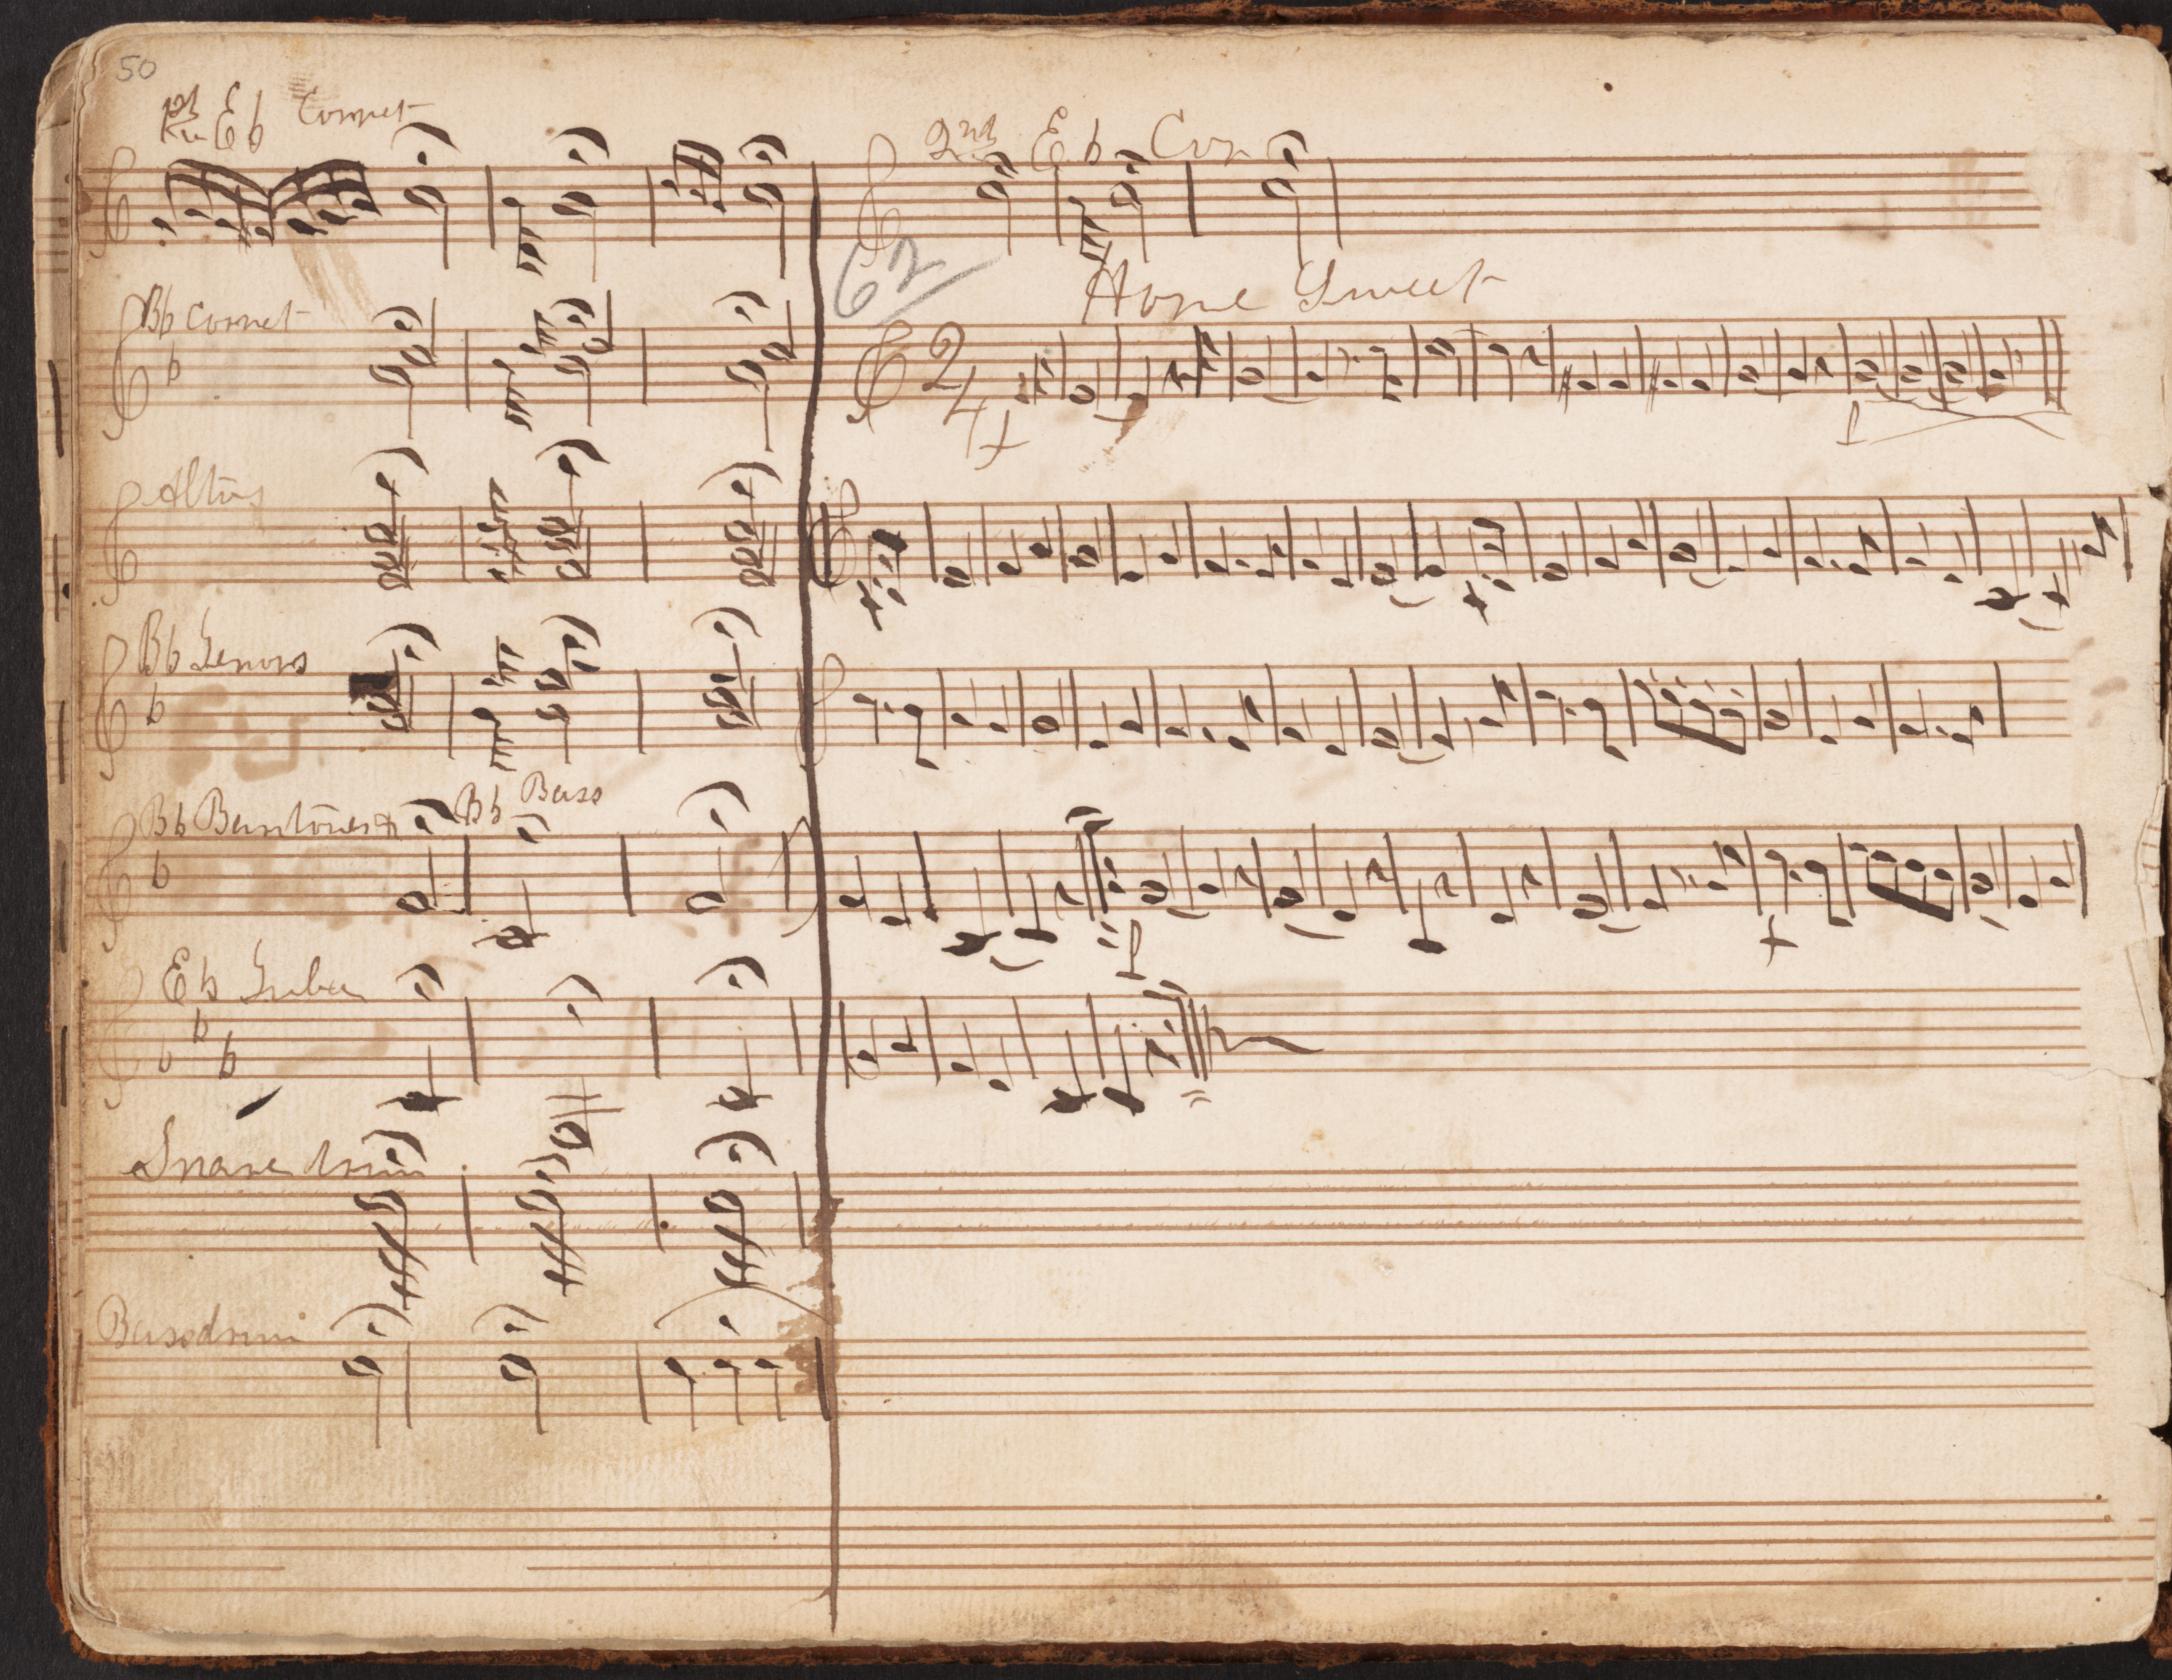 50
1st Eb Cornet
2nd Eb Cor
62
Bb Cornet
Hope Sweet
2/4
Altos
Bb Tenors
Bb Baritones
Bb Bass
Eb Tuba
Snare drum
Bassdrum